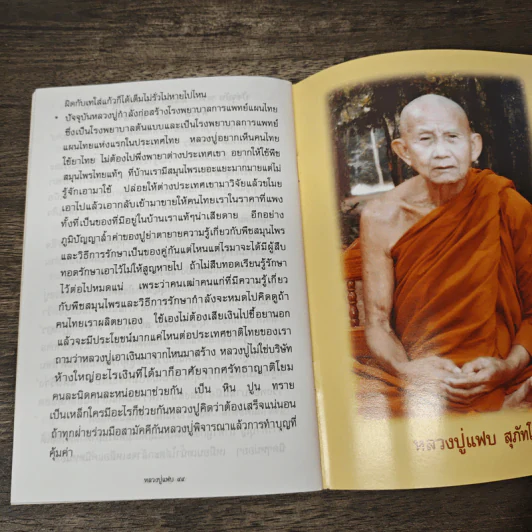 ผิดกับเทใส่แก้วก็ได้เต็มไม่รั่วไม่หายไปไหน
• ปัจจุบันหลวงปู่กำลังก่อสร้างโรงพยาบาลการแพทย์แผนไทย
ซึ่งเป็นโรงพยาบาลต้นแบบและเป็นโรงพยาบาลการแพทย์
แผนไทยแห่งแรกในประเทศไทย หลวงปู่อยากเห็นคนไทย
ใช้ยาไทย ไม่ต้องไปพึ่งพายาต่างประเทศเขา อยากให้ใช้พืช
สมุนไพรไทยแท้ๆ ที่บ้านเรามีสมุนไพรเยอะแยะมากมายแต่ไม่
รู้จักเอามาใช้ ปล่อยให้ต่างประเทศเขามาวิจัยแล้วขโมย
เอาไปแล้วเอากลับเข้ามาขายให้คนไทยเราในราคาที่แพง
ทั้งที่เป็นของที่มีอยู่ในบ้านเราแท้ๆน่าเสียดาย อีกอย่าง
ภูมิปัญญาล้ำค่าของปู่ย่าตายายความรู้เกี่ยวกับพืชสมุนไพร
และวิธีการรักษาเป็นของคู่กันแต่ไหนแต่ไรมาจะได้มีผู้สืบ
ทอดรักษาเอาไว้ไม่ให้สูญหายไป ถ้าไม่สืบทอดเรียนรู้รักษา
ไว้ต่อไปหมดแน่ เพราะว่าคนเฒ่าคนแก่ที่มีความรู้เกี่ยว
กับพืชสมุนไพรและวิธีการรักษากำลังจะหมดไปคิดดูถ้า
คนไทยเราผลิตยาเอง ใช้เองไม่ต้องเสียเงินไปซื้อยานอก
แล้วจะมีประโยชน์มากแค่ไหนต่อประเทศชาติไทยของเรา
ถามว่าหลวงปู่เอาเงินมาจากไหนมาสร้าง หลวงปู่ไม่ใช่บริษัท
ห้างใหญ่อะไรเงินที่ได้มาก็อาศัยจากศรัทธาญาติโยม
คนละนิดคนละหน่อยมาช่วยกัน เป็น หิน ปูน ทราย
เป็นเหล็กใครมีอะไรก็ช่วยกันหลวงปู่คิดว่าต้องเสร็จแน่นอน
ถ้าทุกฝ่ายร่วมมือสามัคคีกันหลวงปู่พิจารณาแล้วการทำบุญที่
คุ้มค่า
หลวงปู่แฟบ ๔๔
หลวงปู่แฟบ สุภัทโ